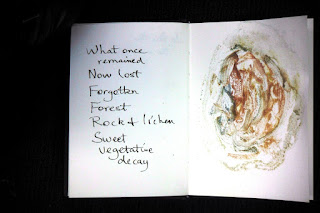 What once
remained
Now lost
Forgotten
Forest
Rock & lichen
Sweet
vegetative
decay